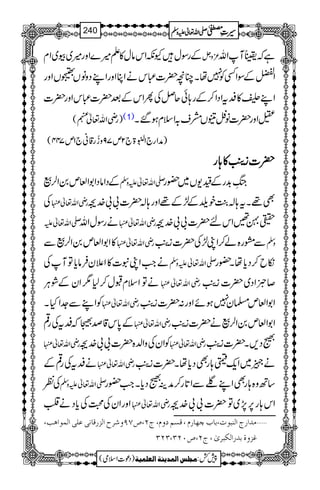 سیرتِ مصطفیٰ صلی اللہ تعالیٰ علیہ وسلم
240
ہے کہ یقیناً آپ اللہ عزوجل کے رسول ہیں کیونکہ اس مال کا علم میرے اور میری بیوی ام
الفضل کے سوا کسی کو نہیں تھا۔ چنانچہ حضرت عباس نے اپنا اور اپنے دونوں بھتیجوں اور
اپنے حلیف کا فدیہ ادا کرکے رہائی حاصل کی پھر اس کے بعد حضرت عباس اور حضرت
عقیل اور حضرت نوفل تینوں مشرف بہ اسلام ہوگئے۔(1) (رضی اللہ تعالیٰ عنہم)
(مدارج النبوۃ ج۲ ص۹۷ و زرقانی ج۱ ص۴۴۷)
حضرت زینب کا ہار
جنگ بدر کے قیدیوں میں حضور صلی اللہ تعالیٰ علیہ وسلم کے داماد ابو العاص بن الربیع
بھی تھے۔ یہ ہالہ بنت خویلد کے لڑکے تھے اور ہالہ حضرت بی بی خدیجہ رضی اللہ تعالیٰ عنہا کی
حقیقی بہن تھیں اس لئے حضرت بی بی خدیجہ رضی اللہ تعالیٰ عنہا نے رسول اللہ صلی اللہ تعالیٰ علیہ
وسلم سے مشورہ لے کر اپنی لڑکی حضرت زینب رضی اللہ تعالیٰ عنہا کا ابو العاص بن الربیع سے
نکاح کردیا تھا۔ حضور صلی اللہ تعالیٰ علیہ وسلم نے جب اپنی نبوت کا اعلان فرمایا تو آپ کی
صاحبزادی حضرت زینب رضی اللہ تعالیٰ عنہا نے تو اسلام قبول کرلیا مگر ان کے شوہر
ابو العاص مسلمان نہیں ہوئے اور نہ حضرت زینب رضی اللہ تعالیٰ عنہا کو اپنے سے جدا کیا۔
ابو العاص بن الربیع نے حضرت زینب رضی اللہ تعالیٰ عنہا کے پاس قاصد بھیجا کہ فدیہ کی رقم
بھیج دیں۔ حضرت زینب رضی اللہ تعالیٰ عنہا کو ان کی والدہ حضرت بی بی خدیجہ رضی اللہ تعالیٰ عنہا
نے جہیز میں ایک قیمتی ہار بھی دیا تھا۔ حضرت زینب رضی اللہ تعالیٰ عنہا نے فدیہ کی رقم کے
ساتھ وہ ہار بھی اپنے گلے سے اتار کر مدینہ بھیج دیا۔ جب حضور صلی اللہ تعالیٰ علیہ وسلم کی نظر
اس ہار پر پڑی تو حضرت بی بی خدیجہ رضی اللہ تعالیٰ عنہا اور ان کی محبت کی یاد نے قلب
مدارج النبوت، باب چهارم، قسم دوم، ج2، ص97 وشرح الزرقانی علی المواهب،
غزوة بدر الکبریٰ، ج2، ص320، 323
پیش کش: مجلس المدینة العلمیة (دعوتِ اسلامی)